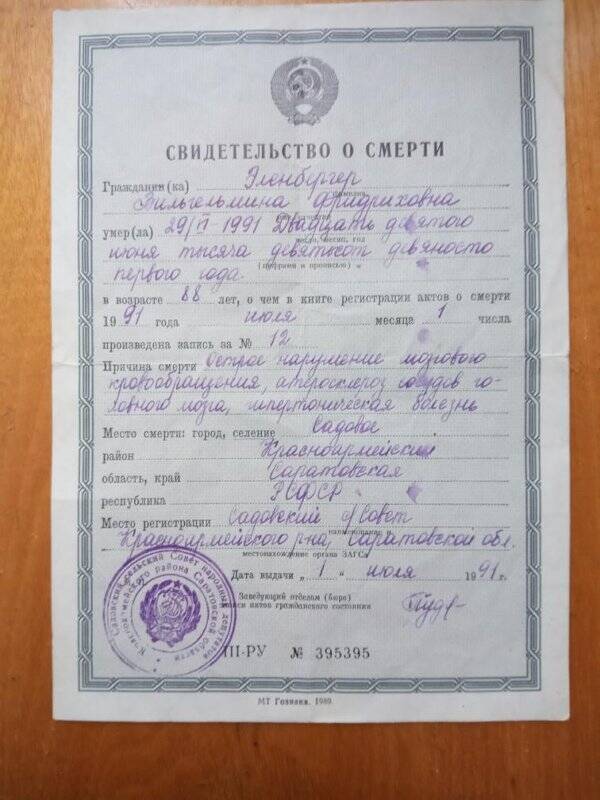 СВИДЕТЕЛЬСТВО О СМЕРТИ
Гражданин(ка) Эленбергер
фамилия
Вильгельмина Фридриховна
умер(ла) 29/VI-1991 Двадцать девятого
число, месяц, год
июня тысяча девятьсот девяносто
первого года.
(цифрами и прописью)
в возрасте 88 лет, о чем в книге регистрации актов о смерти
1991 года июля месяца 1 числа
произведена запись за № 12
Причина смерти Острое нарушение мозгового
кровообращения, атеросклероз сосудов го-
ловного мозга, гипертоническая болезнь
Место смерти: город, селение Садовое
район Красноармейский
область, край Саратовская
республика РСФСР
Место регистрации Садовский с/Совет
наименование и
Красноармейского р-на, Саратовской обл.
местонахождение органа ЗАГСа
Дата выдачи „1" июля 1991 г.
Заведующий отделом (бюро)
записи актов гражданского состояния
Садовский сельский Совет народных депутатов
Красноармейского района Саратовской области
III-РУ № 395395
МТ Гознака. 1989.